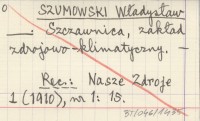 SZUMOWSKI Władysław
—: Szczawnica, zakład
zdrojowo-klimatyczny. —
Rec.: Nasze Zdroje
1 (1910), nr 1: 15.